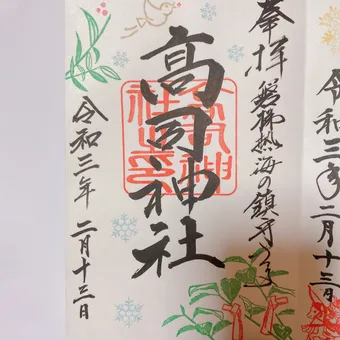 令和三年二月十三日
奉拝 磐梯熱海の鎮守
高司神社
令和三年 二月十三日